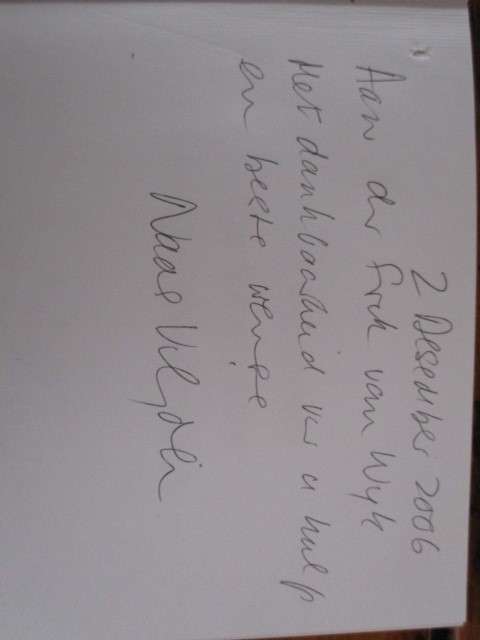 2 Desember 2006
Aan dr Frik van Wyk
Met dankbaarheid vir u hulp
en beste wense
Naas